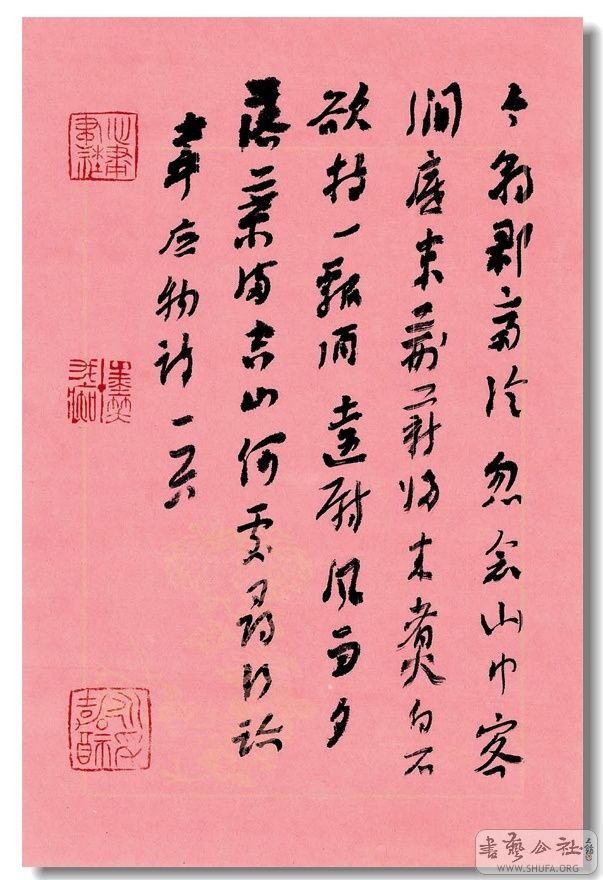 今朝郡齋冷忽念山中客
澗底束荊薪歸來煮白石
欲持一瓢酒遠慰風雨夕
落葉滿空山何處尋行跡
韋應物詩一首
書藝公社
WWW.SHUFA.ORG